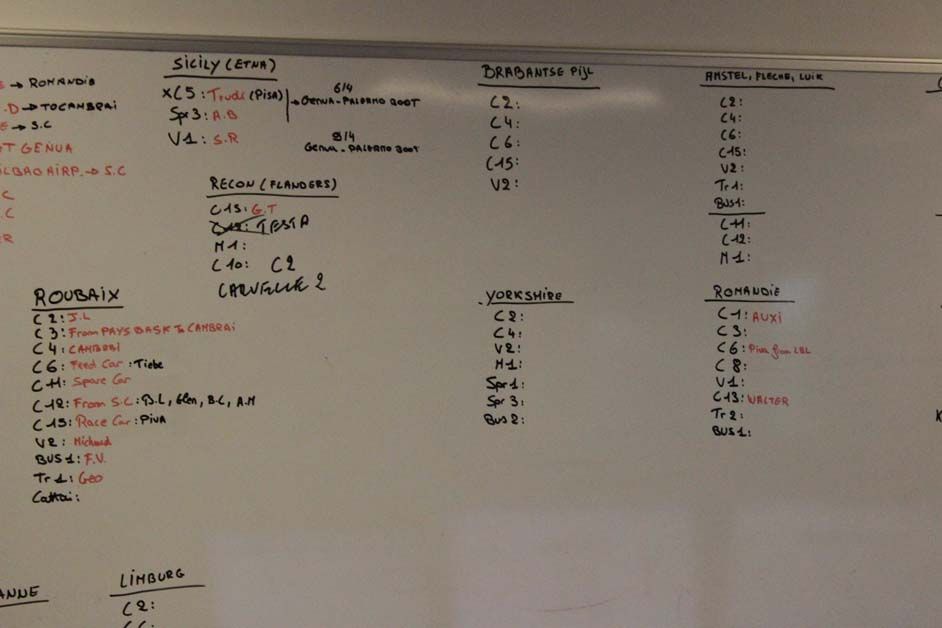 → ROMANDIE
.D → TO CAMBRAI
E → S.C
T GENUA
ILBAO AIRP. → S.C
C
.C
R
SICILY (ETNA)
XC5: Trudi (PISA)
Spr 3: A.B
V1: S.R
6/4
→ GENUA - PALERMO BOOT
8/4
GENUA - PALERMO BOOT
RECON (FLANDERS)
C15: G.T
TESTA
M1:
C10: C2
ROUBAIX
C2: J.L
C3: From PAYS BASK To CAMBRAI
C4: CAMBRAI
C6: Feed Car: Tiebe
C11: Spare Car
C12: From S.C: D.L, Glen, B.C, A.M
C15: Race Car: PIVA
V2: Michael
BUS1: F.V.
Tr1: Geo
LIMBURG
C2:
ANNE
BRABANTSE PIJL
C2:
C4:
C6:
C15:
V2:
YORKSHIRE
C2:
C4:
V2:
M1:
Spr 1:
Spr 3:
BUS 2:
AMSTEL, FLECHE, LUIK
C2:
C4:
C6:
C15:
V2:
Tr1:
BUS1:
C11:
C12:
M1:
ROMANDIE
C1: AUXI
C3:
C6: Piva from LBL
C8:
V1:
C13: WALTER
Tr2:
BUS1: